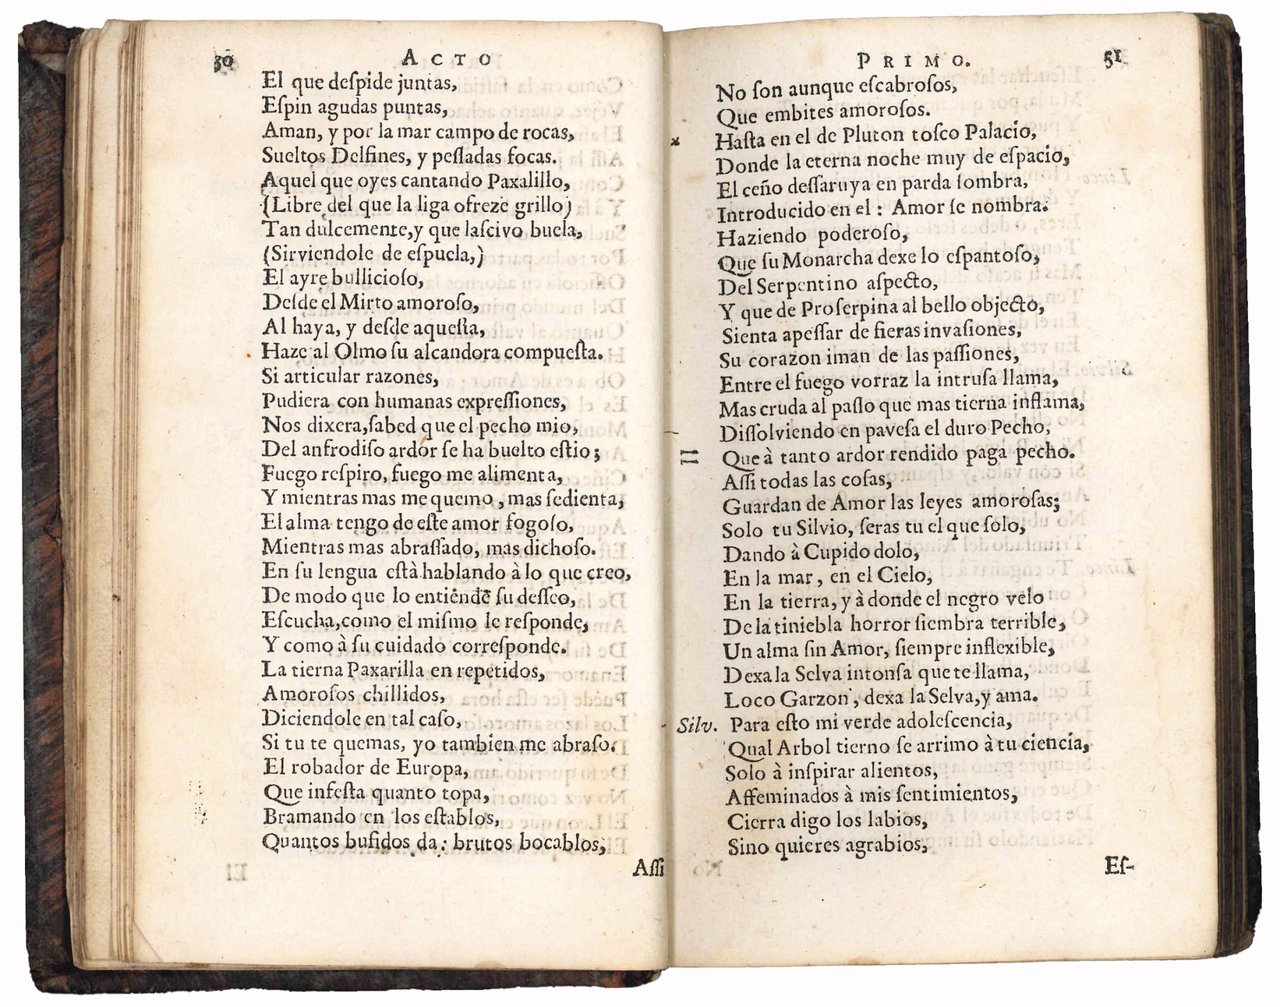 30 ACTO
El que deſpide juntas,
Eſpin agudas puntas,
Aman, y por la mar campo de rocas,
Sueltos Delfines, y peſſadas focas.
Aquel que oyes cantando Paxalillo,
(Libre del que la liga ofreze grillo)
Tan dulcemente, y que laſcivo buela,
(Sirviendole de eſpuela,)
El ayre bullicioſo,
Deſde el Mirto amoroſo,
Al haya, y deſde aqueſta,
Haze al Olmo ſu alcandora compueſta.
Si articular razones,
Pudiera con humanas expreſſiones,
Nos dixera, ſabed que el pecho mio,
Del anfrodiſo ardor ſe ha buelto eſtio;
Fuego reſpiro, fuego me alimenta,
Y mientras mas me quemo, mas ſedienta,
El alma tengo de eſte amor fogoſo,
Mientras mas abraſſado, mas dichoſo.
En ſu lengua eſtà hablando à lo que creo,
De modo que lo entiéndē ſu deſſeo,
Eſcucha, como el miſmo le reſponde,
Y como à ſu cuidado correſponde.
La tierna Paxarilla en repetidos,
Amoroſos chillidos,
Diciendole en tal caſo,
Si tu te quemas, yo tambien me abraſo.
El robador de Europa,
Que infeſta quanto topa,
Bramando en los eſtablos,
Quantos bufidos da: brutos bocablos,
Aſſi
PRIMO. 51
No ſon aunque eſcabroſos,
Que embites amoroſos.
Haſta en el de Pluton toſco Palacio,
Donde la eterna noche muy de eſpacio,
El ceño deſſaruya en parda ſombra,
Introducido en el: Amor ſe nombra.
Haziendo poderoſo,
Que ſu Monarcha dexe lo eſpantoſo,
Del Serpentino aſpecto,
Y que de Proſerpina al bello objecto,
Sienta apeſſar de fieras invaſiones,
Su corazon iman de las paſſiones,
Entre el fuego vorraz la intruſa llama,
Mas cruda al paſſo que mas tierna inflama,
Diſſolviendo en paveſa el duro Pecho,
Que à tanto ardor rendido paga pecho.
Aſſi todas las coſas,
Guardan de Amor las leyes amoroſas;
Solo tu Silvio, ſeras tu el que ſolo,
Dando à Cupido dolo,
En la mar, en el Cielo,
En la tierra, y à donde el negro velo
De la tiniebla horror ſiembra terrible,
Un alma ſin Amor, ſiempre inflexible,
Dexa la Selva intonſa que te llama,
Loco Garzon, dexa la Selva, y ama.
Silv. Para eſto mi verde adoleſcencia,
Qual Arbol tierno ſe arrimo à tu ciencia,
Solo à inſpirar alientos,
Affeminados à mis ſentimientos,
Cierra digo los labios,
Sino quieres agrabios,
Eſ-